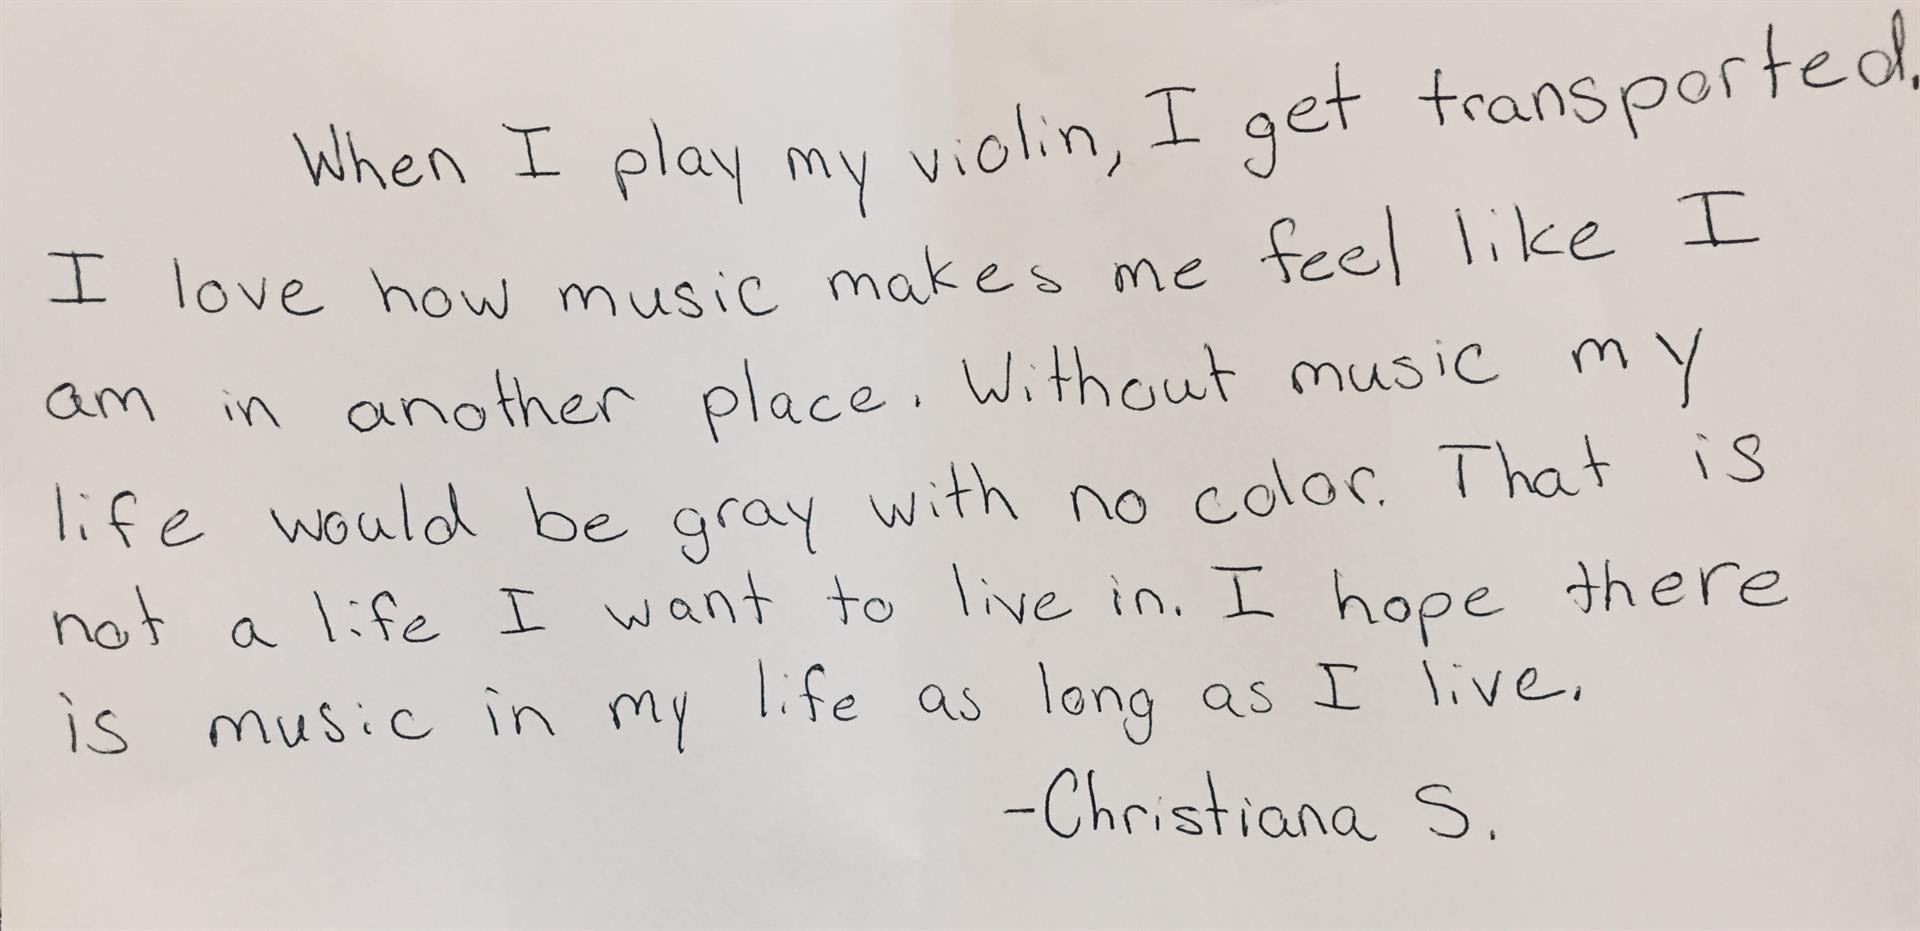 When I play my violin, I get transported.
I love how music makes me feel like I
am in another place. Without music my
life would be gray with no color. That is
not a life I want to live in. I hope there
is music in my life as long as I live.
-Christiana S.